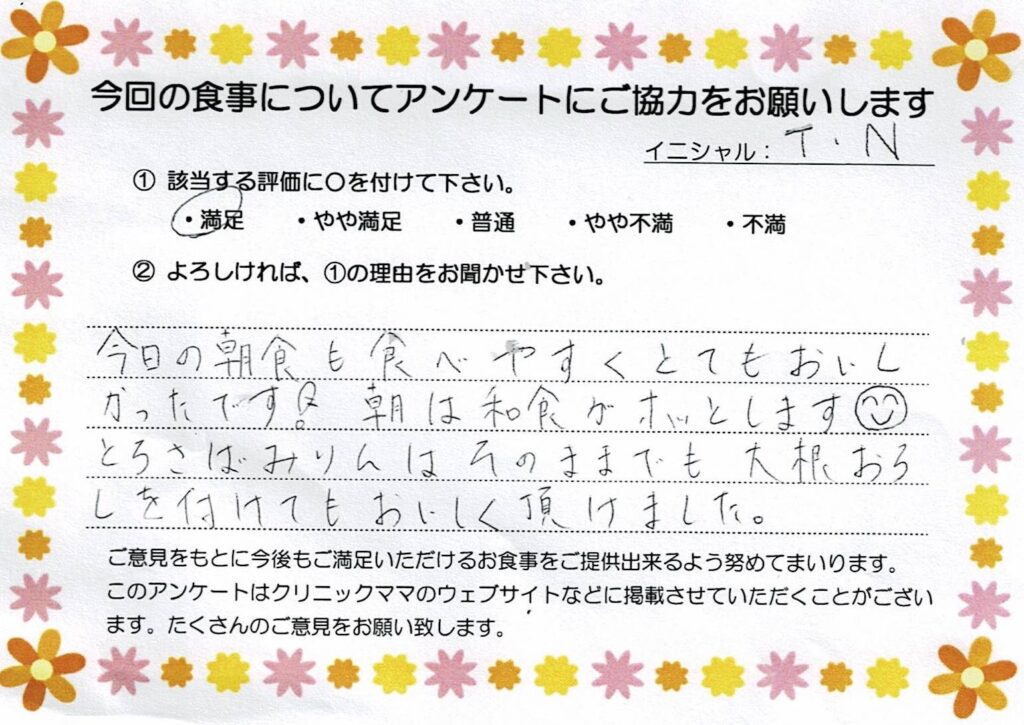 今回の食事についてアンケートにご協力をお願いします
イニシャル： T・N
① 該当する評価に〇を付けて下さい。
・満足 ・やや満足 ・普通 ・やや不満 ・不満
② よろしければ、①の理由をお聞かせ下さい。
今日の朝食も食べやすくとてもおいし
かったです 朝は和食がホッとします
とろさばみりんはそのままでも大根おろ
しを付けてもおいしく頂けました。
ご意見をもとに今後もご満足いただけるお食事をご提供出来るよう努めてまいります。
このアンケートはクリニックママのウェブサイトなどに掲載させていただくことがござい
ます。たくさんのご意見をお願い致します。